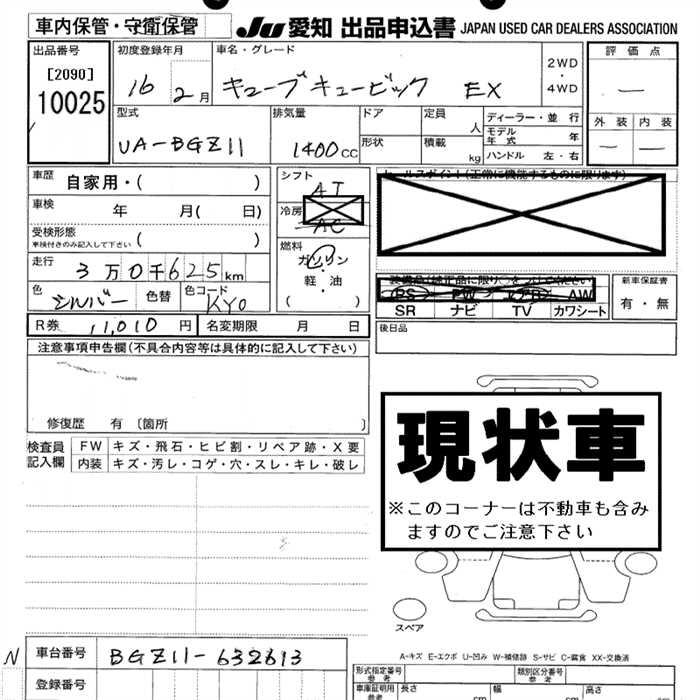 車内保管・守衛保管 JU 愛知 出品申込書 JAPAN USED CAR DEALERS ASSOCIATION
出品番号 初度登録年月 車名・グレード 評価点
[2090] 16 2月 キューブキュービック EX 2WD・4WD
10025
型式 排気量 ドア 定員 人 ディーラー・並行 外装 内装
UA-BGZ11 1400cc 形状 積載 kg モデル年式 年
ハンドル 左・右
車歴 自家用・( ) シフト AT セールスポイント(正常に機能するものに限ります)
車検 年 月( 日) 冷房 AC
受検形態 ( ) 燃料
車検付きのみ記入して下さい
走行 3万0千625km ガソリン・軽・油 ( ) 装備品(純正品に限り○をつけてください) 新車保証書
色 シルバー 色替 色コード KY0 PS PW エアB AW 有・無
SR ナビ TV カワシート
R券 11,010円 名変期限 月 日 後日品
注意事項申告欄(不具合内容等は具体的に記入して下さい)
現状車
※このコーナーは不動車も含み
ますのでご注意下さい
修復歴 有 〔箇所 〕
検査員記入欄 FW キズ・飛石・ヒビ割・リペア跡・X要
内装 キズ・汚レ・コゲ・穴・スレ・キレ・破レ
スペア
N 車台番号 BGZ11-632613
A-キズ E-エクボ U-凹み W-補修跡 S-サビ C-腐食 XX-交換済
登録番号 形式指定番号 参考 類別区分番号 参考
車庫証明用 参考 長さ cm 幅 cm 高さ cm